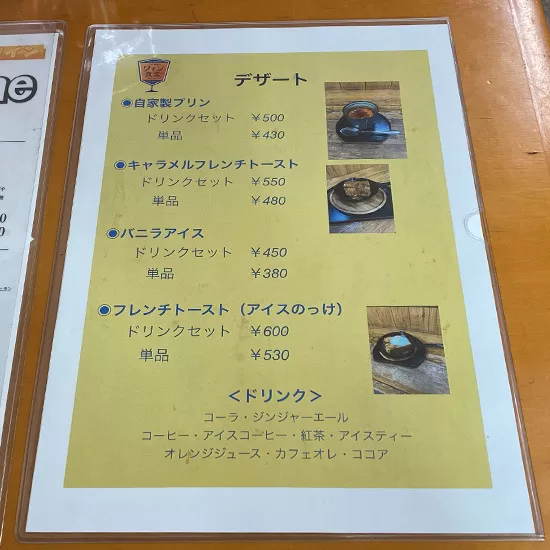 ワイン
食堂
デザート
◉自家製プリン
ドリンクセット ￥500
単品 ￥430
◉キャラメルフレンチトースト
ドリンクセット ￥550
単品 ￥480
◉バニラアイス
ドリンクセット ￥450
単品 ￥380
◉フレンチトースト（アイスのっけ）
ドリンクセット ￥600
単品 ￥530
＜ドリンク＞
コーラ・ジンジャーエール
コーヒー・アイスコーヒー・紅茶・アイスティー
オレンジジュース・カフェオレ・ココア